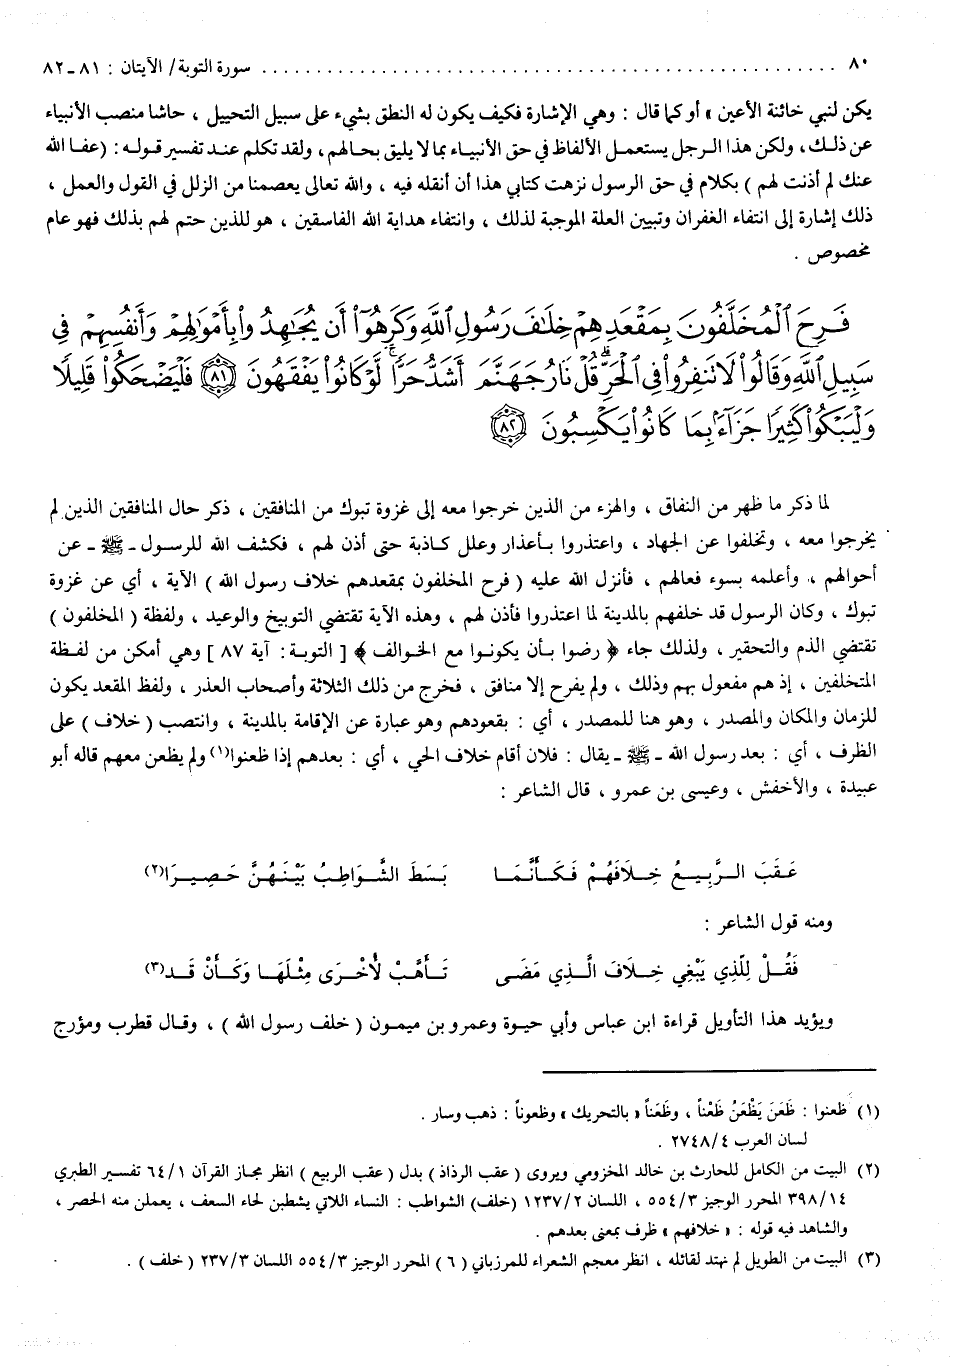 ٨٠ ........................................................ سورة التوبة/ الآيتان : ٨١ - ٨٢
يكن لنبي خائنة الأعين » أو كما قال : وهي الإشارة فكيف يكون له النطق بشيء على سبيل التحييل ، حاشا منصب الأنبياء
عن ذلك، ولكن هذا الرجل يستعمل الألفاظ في حق الأنبياء بما لا يليق بحالهم، ولقد تكلم عند تفسير قوله : (عفا الله
عنك لم أذنت لهم ) بكلام في حق الرسول نزهت كتابي هذا أن أنقله فيه ، والله تعالى يعصمنا من الزلل في القول والعمل ،
ذلك إشارة إلى انتفاء الغفران وتبيين العلة الموجبة لذلك ، وانتفاء هداية الله الفاسقين ، هو للذين حتم لهم بذلك فهو عام
مخصوص .
فَرِحَ ٱلْمُخَلَّفُونَ بِمَقْعَدِهِمْ خِلَٰفَ رَسُولِ ٱللَّهِ وَكَرِهُوٓا۟ أَن يُجَٰهِدُوا۟ بِأَمْوَٰلِهِمْ وَأَنفُسِهِمْ فِى
سَبِيلِ ٱللَّهِ وَقَالُوا۟ لَا تَنفِرُوا۟ فِى ٱلْحَرِّ ۗ قُلْ نَارُ جَهَنَّمَ أَشَدُّ حَرًّا ۚ لَّوْ كَانُوا۟ يَفْقَهُونَ ﴿٨١﴾ فَلْيَضْحَكُوا۟ قَلِيلًا
وَلْيَبْكُوا۟ كَثِيرًا جَزَآءًۢ بِمَا كَانُوا۟ يَكْسِبُونَ ﴿٨٢﴾
لما ذكر ما ظهر من النفاق ، والهزء من الذين خرجوا معه إلى غزوة تبوك من المنافقين ، ذكر حال المنافقين الذين لم
يخرجوا معه ، وتخلفوا عن الجهاد ، واعتذروا بأعذار وعلل كاذبة حتى أذن لهم ، فكشف الله للرسول - ﷺ - عن
أحوالهم ، وأعلمه بسوء فعالهم ، فأنزل الله عليه ( فرح المخلفون بمقعدهم خلاف رسول الله ) الآية ، أي عن غزوة
تبوك ، وكان الرسول قد خلفهم بالمدينة لما اعتذروا فأذن لهم ، وهذه الآية تقتضي التوبيخ والوعيد ، ولفظة ( المخلفون )
تقتضي الذم والتحقير ، ولذلك جاء ﴿ رضوا بأن يكونوا مع الخوالف ﴾ [ التوبة : آية ٨٧ ] وهي أمكن من لفظة
المتخلفين ، إذ هم مفعول بهم وذلك ، ولم يفرح إلا منافق ، فخرج من ذلك الثلاثة وأصحاب العذر ، ولفظ المقعد يكون
للزمان والمكان والمصدر ، وهو هنا للمصدر ، أي : بقعودهم وهو عبارة عن الإقامة بالمدينة ، وانتصب ( خلاف ) على
الظرف ، أي : بعد رسول الله - ﷺ - يقال : فلان أقام خلاف الحي ، أي : بعدهم إذا ظعنوا(١) ولم يظعن معهم قاله أبو
عبيدة ، والأخفش ، وعيسى بن عمرو ، قال الشاعر :
عَقَبَ الرَّبِيعُ خِلَافَهُمْ فَكَأَنَّمَا بَسَطَ الشَّوَاطِبُ بَيْنَهُنَّ حَصِيرَا(٢)
ومنه قول الشاعر :
فَقُلْ لِلَّذِي يَبْغِي خِلَافَ الَّذِي مَضَى تَأَهَّبْ لُأِخْرَى مِثْلَهَا وَكَأَنْ قَد(٣)
ويؤيد هذا التأويل قراءة ابن عباس وأبي حيوة وعمرو بن ميمون ( خلف رسول الله ) ، وقال قطرب ومؤرج
(١) ظعنوا : ظَعَنَ يَظْعَنُ ظَعْناً ، وظَعَناً « بالتحريك » وظعوناً : ذهب وسار .
لسان العرب ٢٧٤٨/٤ .
(٢) البيت من الكامل للحارث بن خالد المخزومي ويروى ( عقب الرذاذ ) بدل ( عقب الربيع ) انظر مجاز القرآن ٦٤/١ تفسير الطبري
٣٩٨/١٤ المحرر الوجيز ٥٥٤/٣ ، اللسان ١٢٣٧/٢ (خلف) الشواطب : النساء اللاتي يشطبن لحاء السعف ، يعملن منه الحصر ،
والشاهد فيه قوله : « خلافهم » ظرف بمعنى بعدهم .
(٣) البيت من الطويل لم نهتد لقائله ، انظر معجم الشعراء للمرزباني ( ٦ ) المحرر الوجيز ٥٥٤/٣ اللسان ٢٣٧/٣ ( خلف ) .